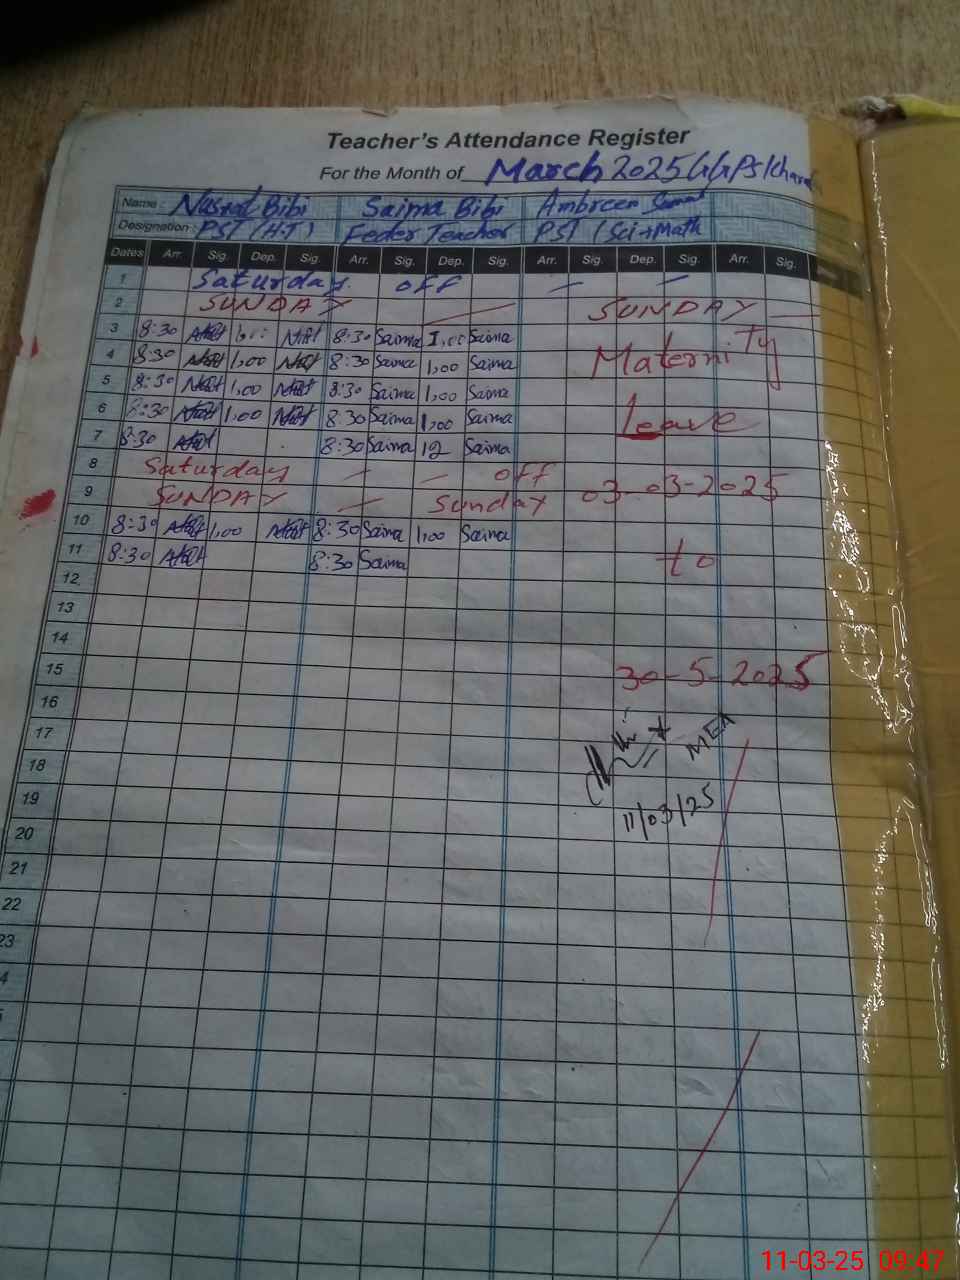 Teacher's Attendance Register
For the Month of March 2025 GGPS Khara
Name : Nusrat Bibi Saima Bibi Ambreen
Designation : PST (H.T) Feeder Teacher PST (Sci+Math
Dates Arr. Sig. Dep. Sig. Arr. Sig. Dep. Sig. Arr. Sig. Dep. Sig. Arr. Sig.
1 Saturday. off — —
2 SUNDAY — SUNDAY —
3 8:30 1,00 8:30 Saima 1,00 Saima
4 8:30 1,00 8:30 Saima 1,00 Saima
Maternity
5 8:30 1,00 8:30 Saima 1,00 Saima
6 8:30 1,00 8:30 Saima 1,00 Saima
Leave
7 8:30 8:30 Saima 12 Saima
8 Saturday — — off
9 SUNDAY — Sunday 03-03-2025
10 8:30 1,00 8:30 Saima 1,00 Saima
11 8:30 8:30 Saima to
12
13
14
15 30-5-2025
16
17 MEA
18
19 11/03/25
20
21
22
23
4
11-03-25 09:47